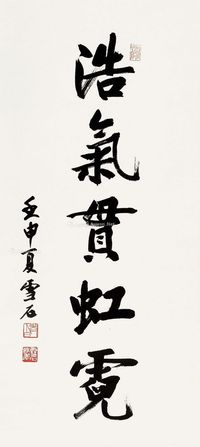 浩氣貫虹霓
壬申夏雪石